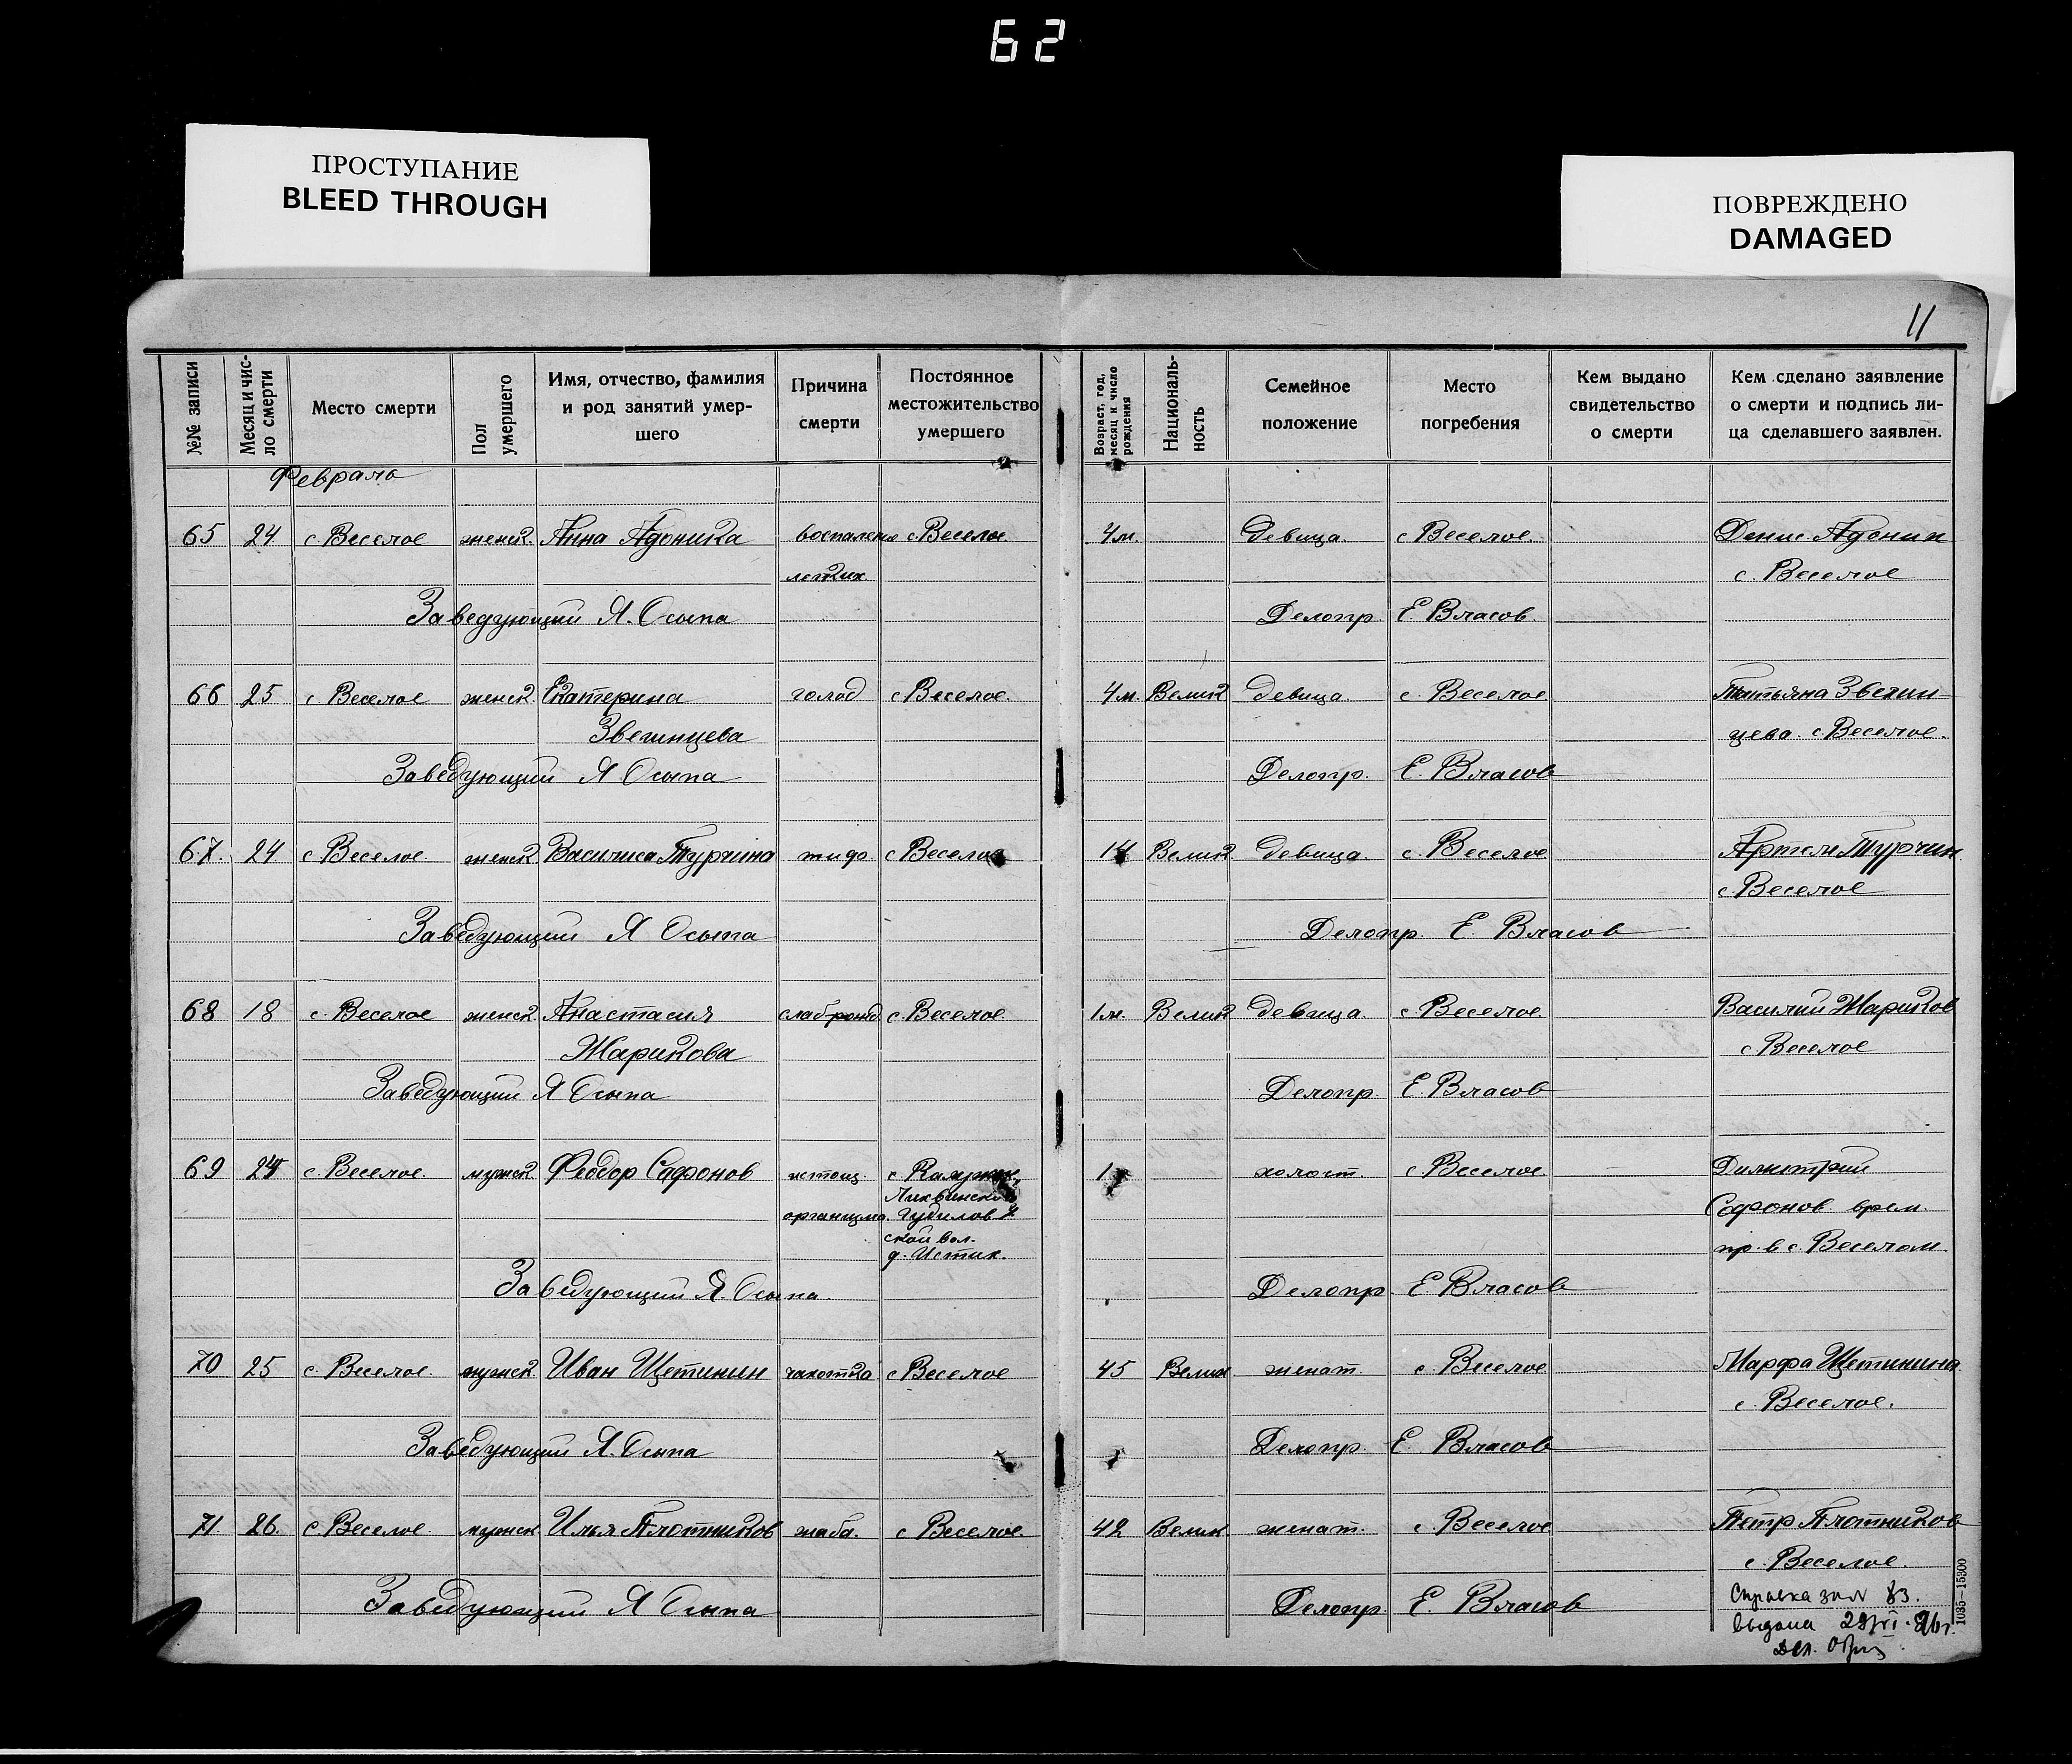 62
ПРОСТУПАНИЕ
BLEED THROUGH
ПОВРЕЖДЕНО
DAMAGED
11
№№ записи
Месяц и чис-
ло смерти
Место смерти
Пол
умершего
Имя, отчество, фамилия
и род занятий умер-
шего
Причина
смерти
Постоянное
местожительство
умершего
Возраст, год,
месяц и число
рождения
Националь-
ность
Семейное
положение
Место
погребения
Кем выдано
свидетельство
о смерти
Кем сделано заявление
о смерти и подпись ли-
ца сделавшего заявлен.
Февраль
65 24 с. Веселое женск. Анна Адонина воспаление с Веселое 4м. Девица. с Веселое. Денис Адонин
легких с. Веселое
Заведующий Я. Осыпа Делопр. Е Власов.
66 25 с Веселое женск. Екатерина голод с Веселое. 4м. Велик девица с. Веселое Татьяна Звегин
Звегинцева цева. с. Веселое.
Заведующий Я Осыпа Делопр. Е. Власов
67. 24 с Веселое. женск Василиса Турчина с Веселое 14 Велик. девица. с. Веселое Артем Турчин
с. Веселое
Заведующий Я Осыпа Делопр Е. Власов
68 18 с. Веселое женск. Анастасия с Веселое 1м. Велик девица. с. Веселое Василий Жариков
Жарикова с Веселое
Заведующий Я Осыпа Делопр. Е. Власов
69 24 с. Веселое. мужск Феодор Сафонов истощ. с 1 холост. с Веселое Димитрий
Лихвинской
организма. Сафонов врем.
ской вол.
д. Истик. пр. в с. Веселом.
Заведующий Я. Осыпа. Делопр Е Власов
70 25 с. Веселое. мужск. Иван Щетинин чахотка с Веселое 45 Велик женат. с Веселое Марфа Щетинина
с. Веселое.
Заведующий Я. Осыпа Делопр. Е. Власов
71 26. с. Веселое. мужск Илья Плотников жаба. с Веселое. 42 Велик женат. с Веселое Петр Плотников
с. Веселое.
Заведующий Я Осыпа Делопр Е. Власов
Справка за № 83.
выдана
1035—15300